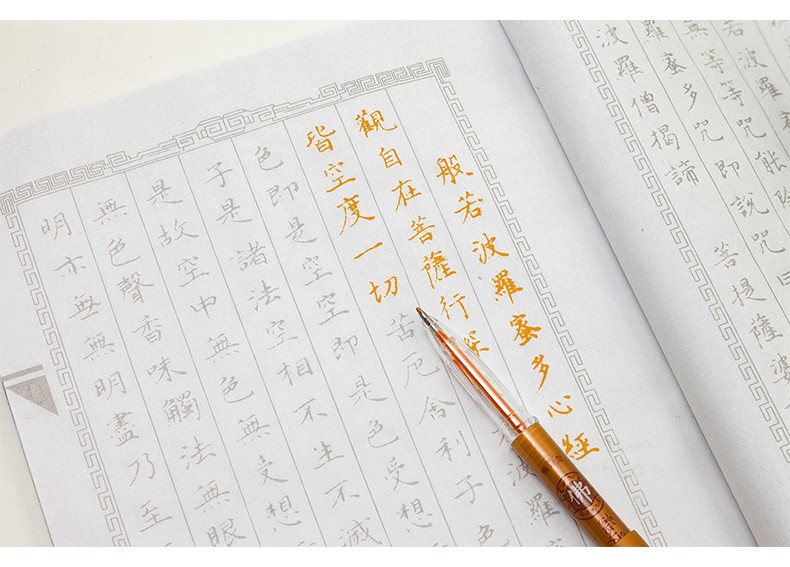 若波羅
無等等咒能
羅蜜多咒即說咒曰
波羅僧揭諦 菩提薩婆
般若波羅蜜多心經
觀自在菩薩行深 波羅
皆空度一切苦厄舍利子色
色即是空空即是色受想
子是諸法空相不生不滅
是故空中無色無受想
無色聲香味觸法無眼
明亦無無明盡乃至
佛